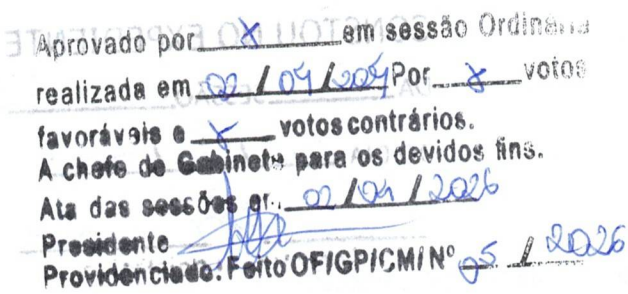 Aprovado por X em sessão Ordinária
realizada em 02 / 04 / Por X votos
favoráveis e X votos contrários.
A chefe de Gabinete para os devidos fins.
Ata das sessões er. 02 / 04 / 2026
Presidente
Providenciado: Feito OF/GP/CM/ Nº 05 / 2026